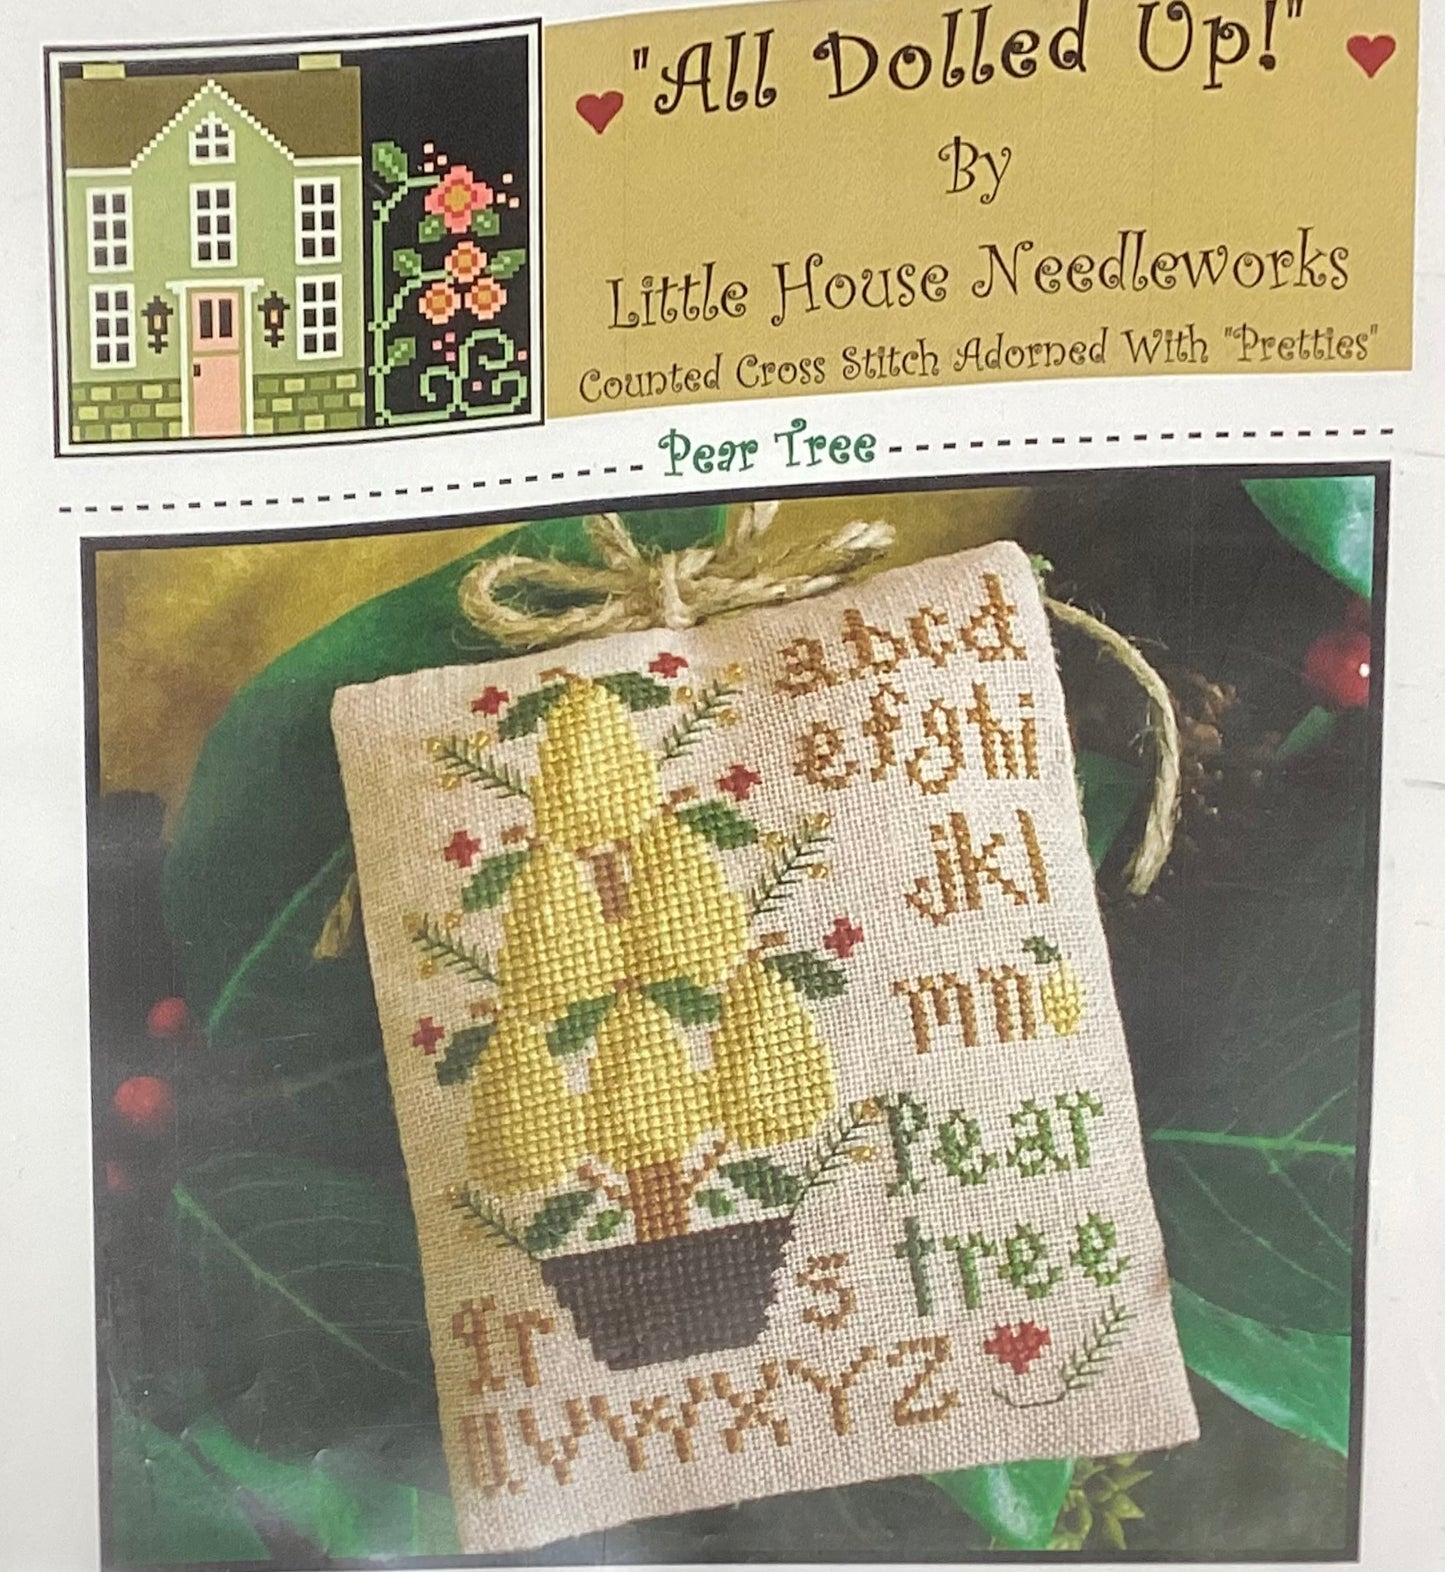 "All Dolled Up!"
By
Little House Needleworks
Counted Cross Stitch Adorned With "Pretties"
Pear Tree
abcd
efghi
jkl
mn
Pear
tree
qr s
uvwxyz